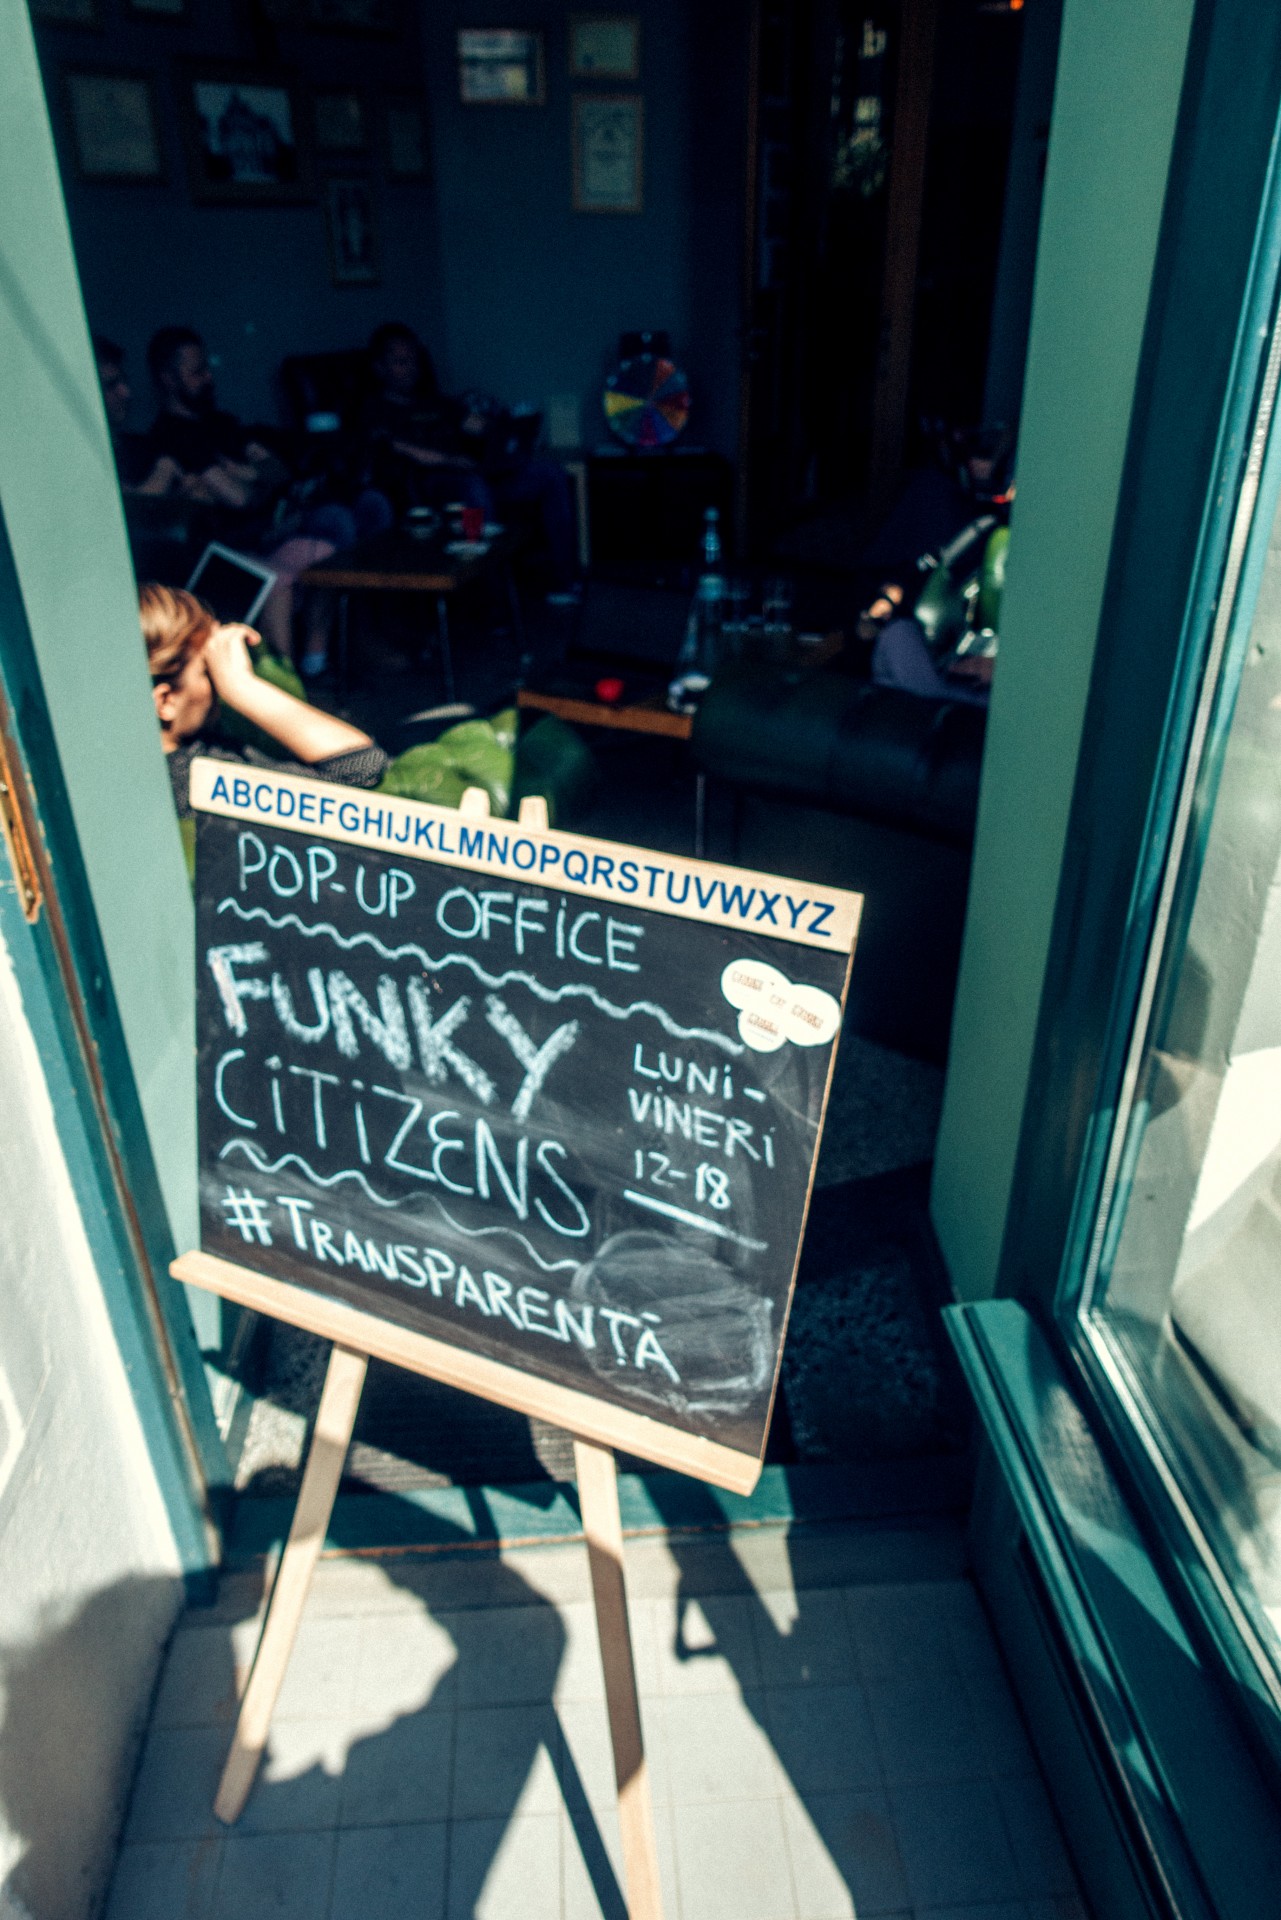 ABCDEFGHIJKLMNOPQRSTUVWXYZ
POP-UP OFFiCE
FUNKY
CiTiZENS
LUNi-
ViNERi
12-18
#TRANSPARENȚĀ